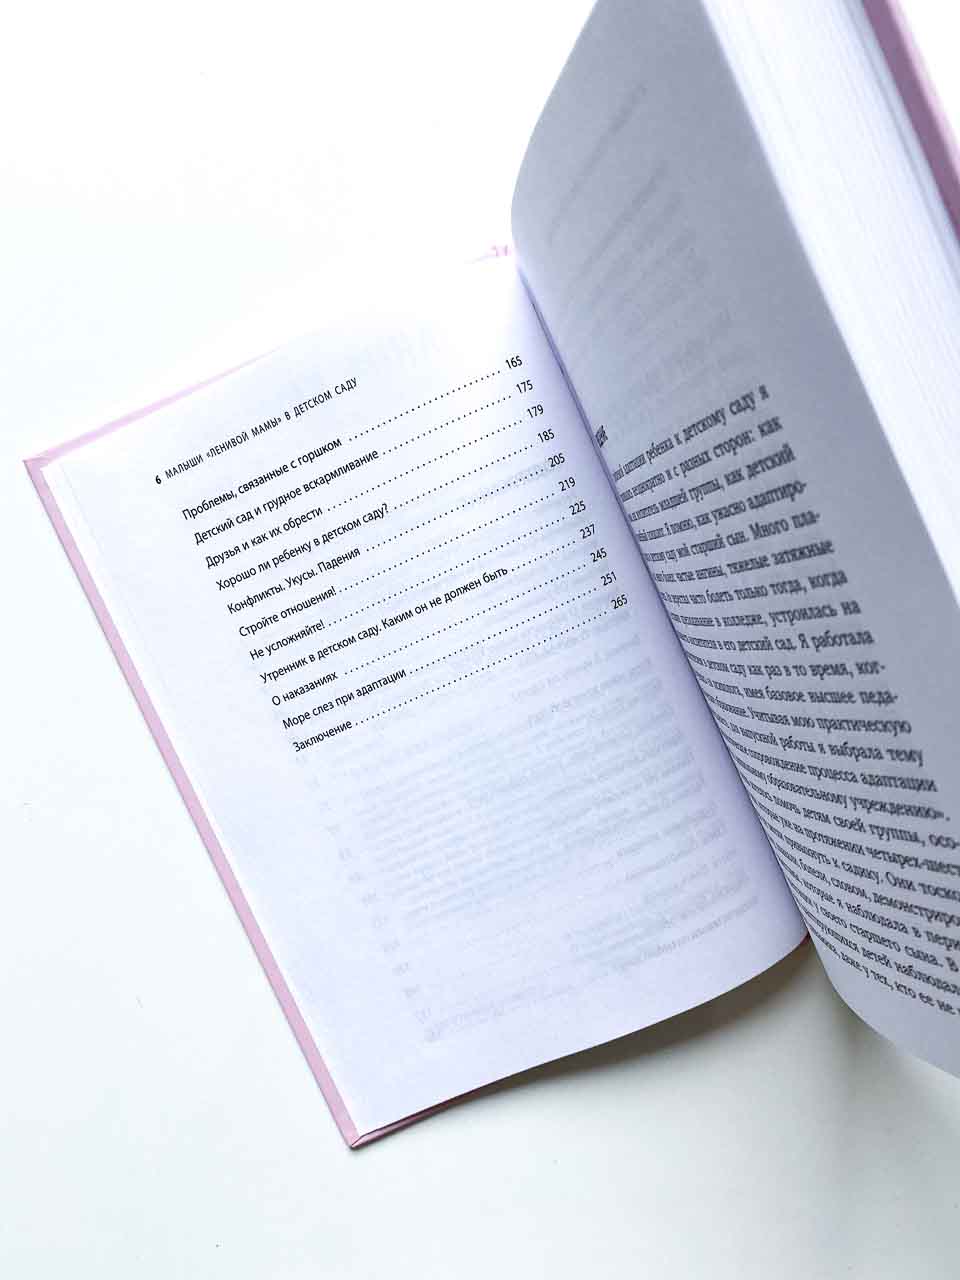 6 МАЛЫШИ «ЛЕНИВОЙ МАМЫ» В ДЕТСКОМ САДУ
Проблемы, связанные с горшком 165
Детский сад и грудное вскармливание 175
Друзья и как их обрести 179
Хорошо ли ребенку в детском саду? 185
Конфликты. Укусы. Падения 205
Стройте отношения! 219
Не усложняйте! 225
Утренник в детском саду. Каким он не должен быть 237
О наказаниях 245
Море слез при адаптации 251
Заключение 265
адаптации ребенка к детскому саду я
неоднократно и с разных сторон: как
младшей группы, как детский
Я помню, как ужасно адаптиро-
саду мой старший сын. Много пла-
ангины, тяжелые затяжные
часто болеть только тогда, когда
в колледже, устроилась на
воспитателя в его детский сад. Я работала
в детском саду как раз в то время, ког-
психолога, имея базовое высшее педа-
образование. Учитывая мою практическую
для выпускной работы я выбрала тему
сопровождение процесса адаптации
образовательному учреждению».
помочь детям своей группы, осо-
которые уже на протяжении четырех-шест
привыкнуть к садику. Они тоско
болели, словом, демонстриро
которые я наблюдала в пери
у своего старшего сына. В
детей наблюдал
даже у тех, кто ее не